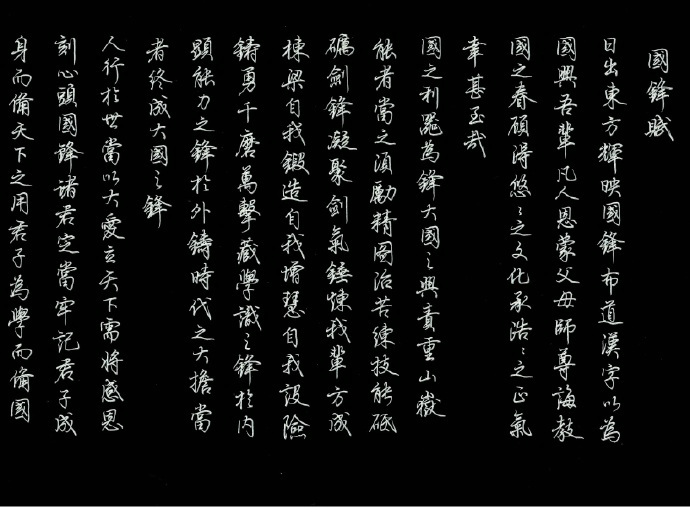 國鋒賦
日出東方輝映國鋒布道漢字以為
國興吾輩凡人恩蒙父母師尊誨教
國之眷顧得悠〻之文化承浩〻之正氣
幸甚至哉
國之利器為鋒大國之興責重山嶽
能者當之須勵精圖治苦練技能砥
礪劍鋒凝聚劍氣錘煉我輩方成
棟梁自我鍛造自我增慧自我設險
鑄勇千磨萬擊藏學識之鋒於內
顯能力之鋒於外鑄時代之大擔當
者終成大國之鋒
人行於世當以大愛立天下需將感恩
刻心頭國鋒諸君定當牢記君子成
身而備天下之用君子為學而備國